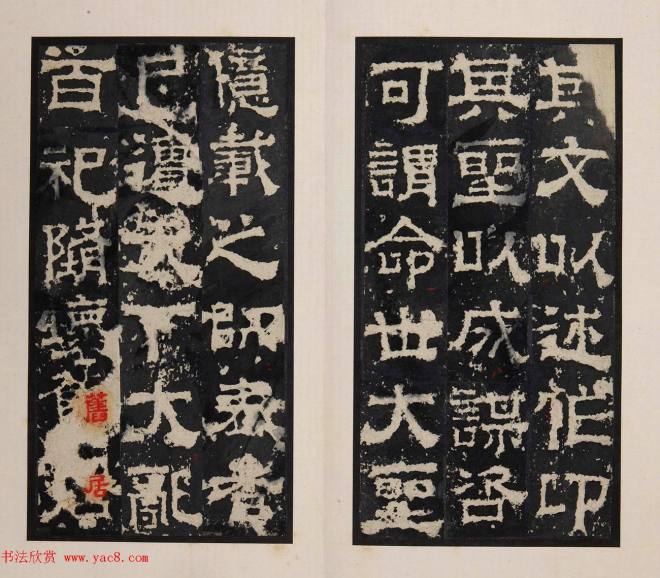 其文以述作卬
其聖以成謀咨
可謂命世大聖
億載之師表者
已遭天下大亂
百祀隳壞
舊居
书法欣赏 www.yac8.com